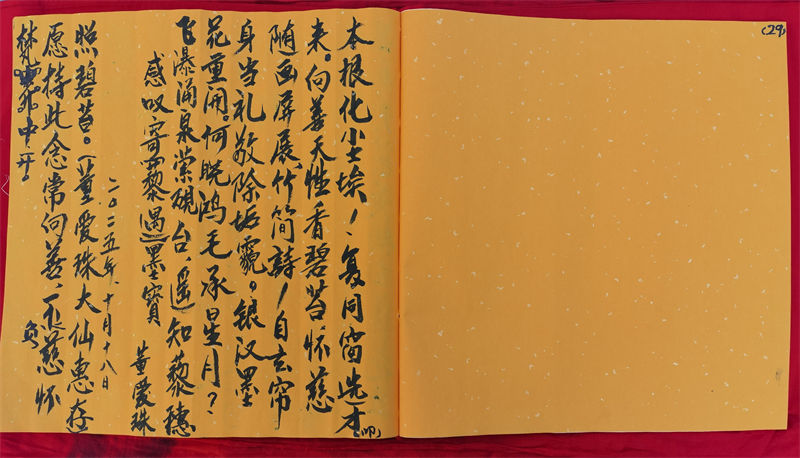 (29)
本根化尘埃！复同窗选才(叩)
来。向善天性香碧苔，怀慈
随画屏展，竹简诗！自玄帘
身当礼敬除垢霾。银汉墨
花重开。何晚鸿毛承星月？
飞瀑涌泉萦砚台，遥知藜穗
感叹寄藜遇墨宝
董爱珠
二〇二五年、十月十八日
照碧苔。(董爱珠大仙惠存
愿持此念常向善，不负慈怀
中开！